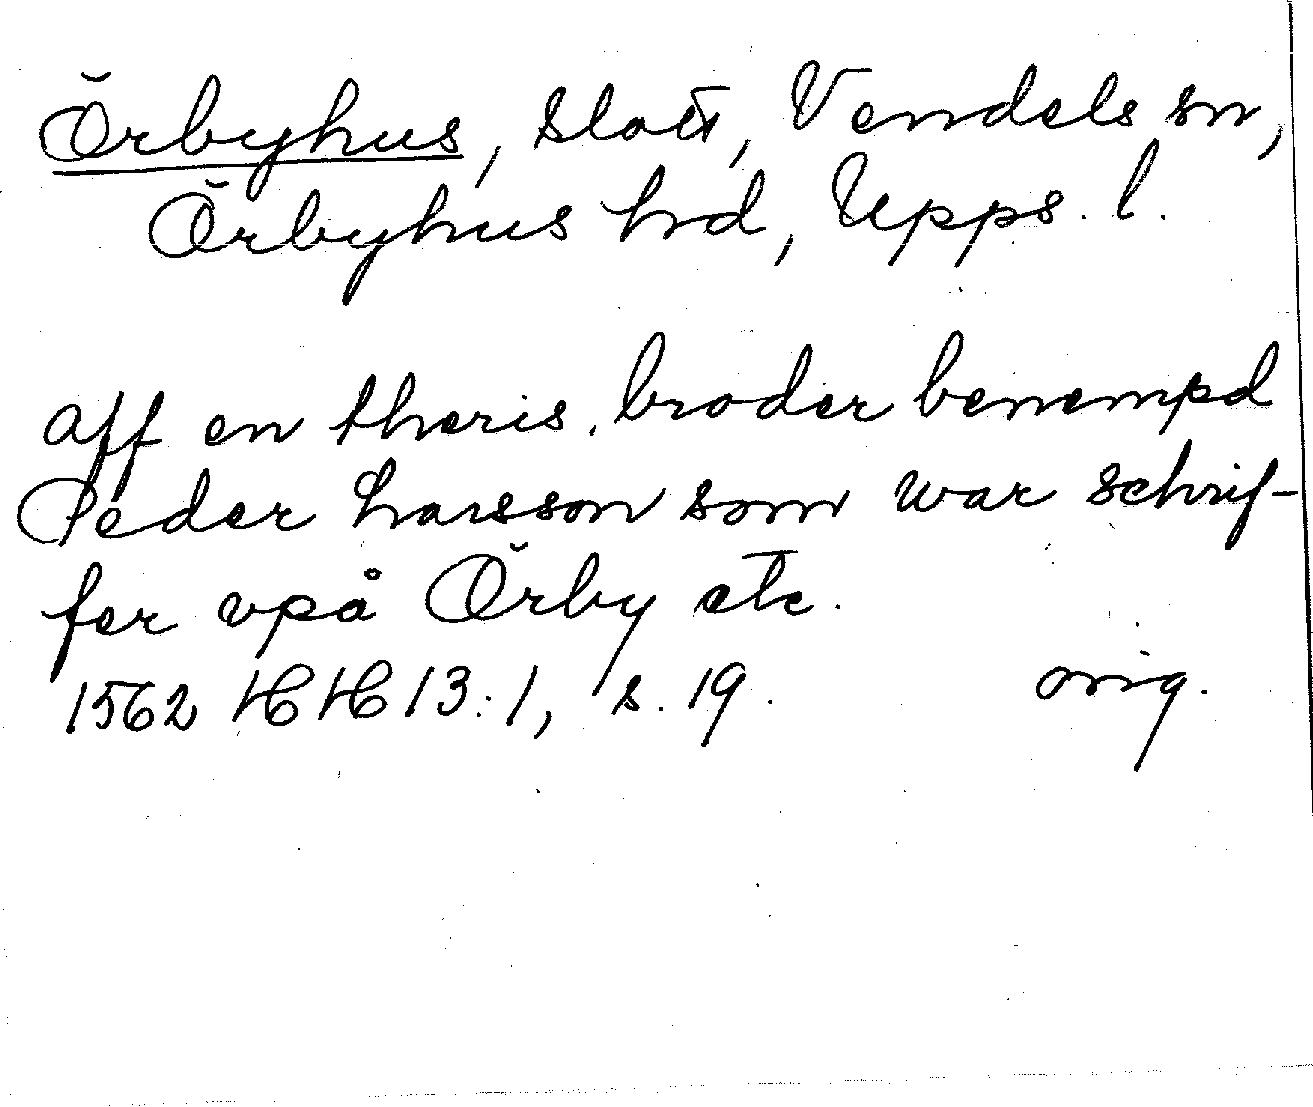 Örbyhus, slott, Vendels sn,
Örbyhus hd, Upps. l.
aff en theris broder benempd
Peder Larsson som war schrif-
fer vpå Örby etc.
1562 HH 13:1, s. 19. orig.